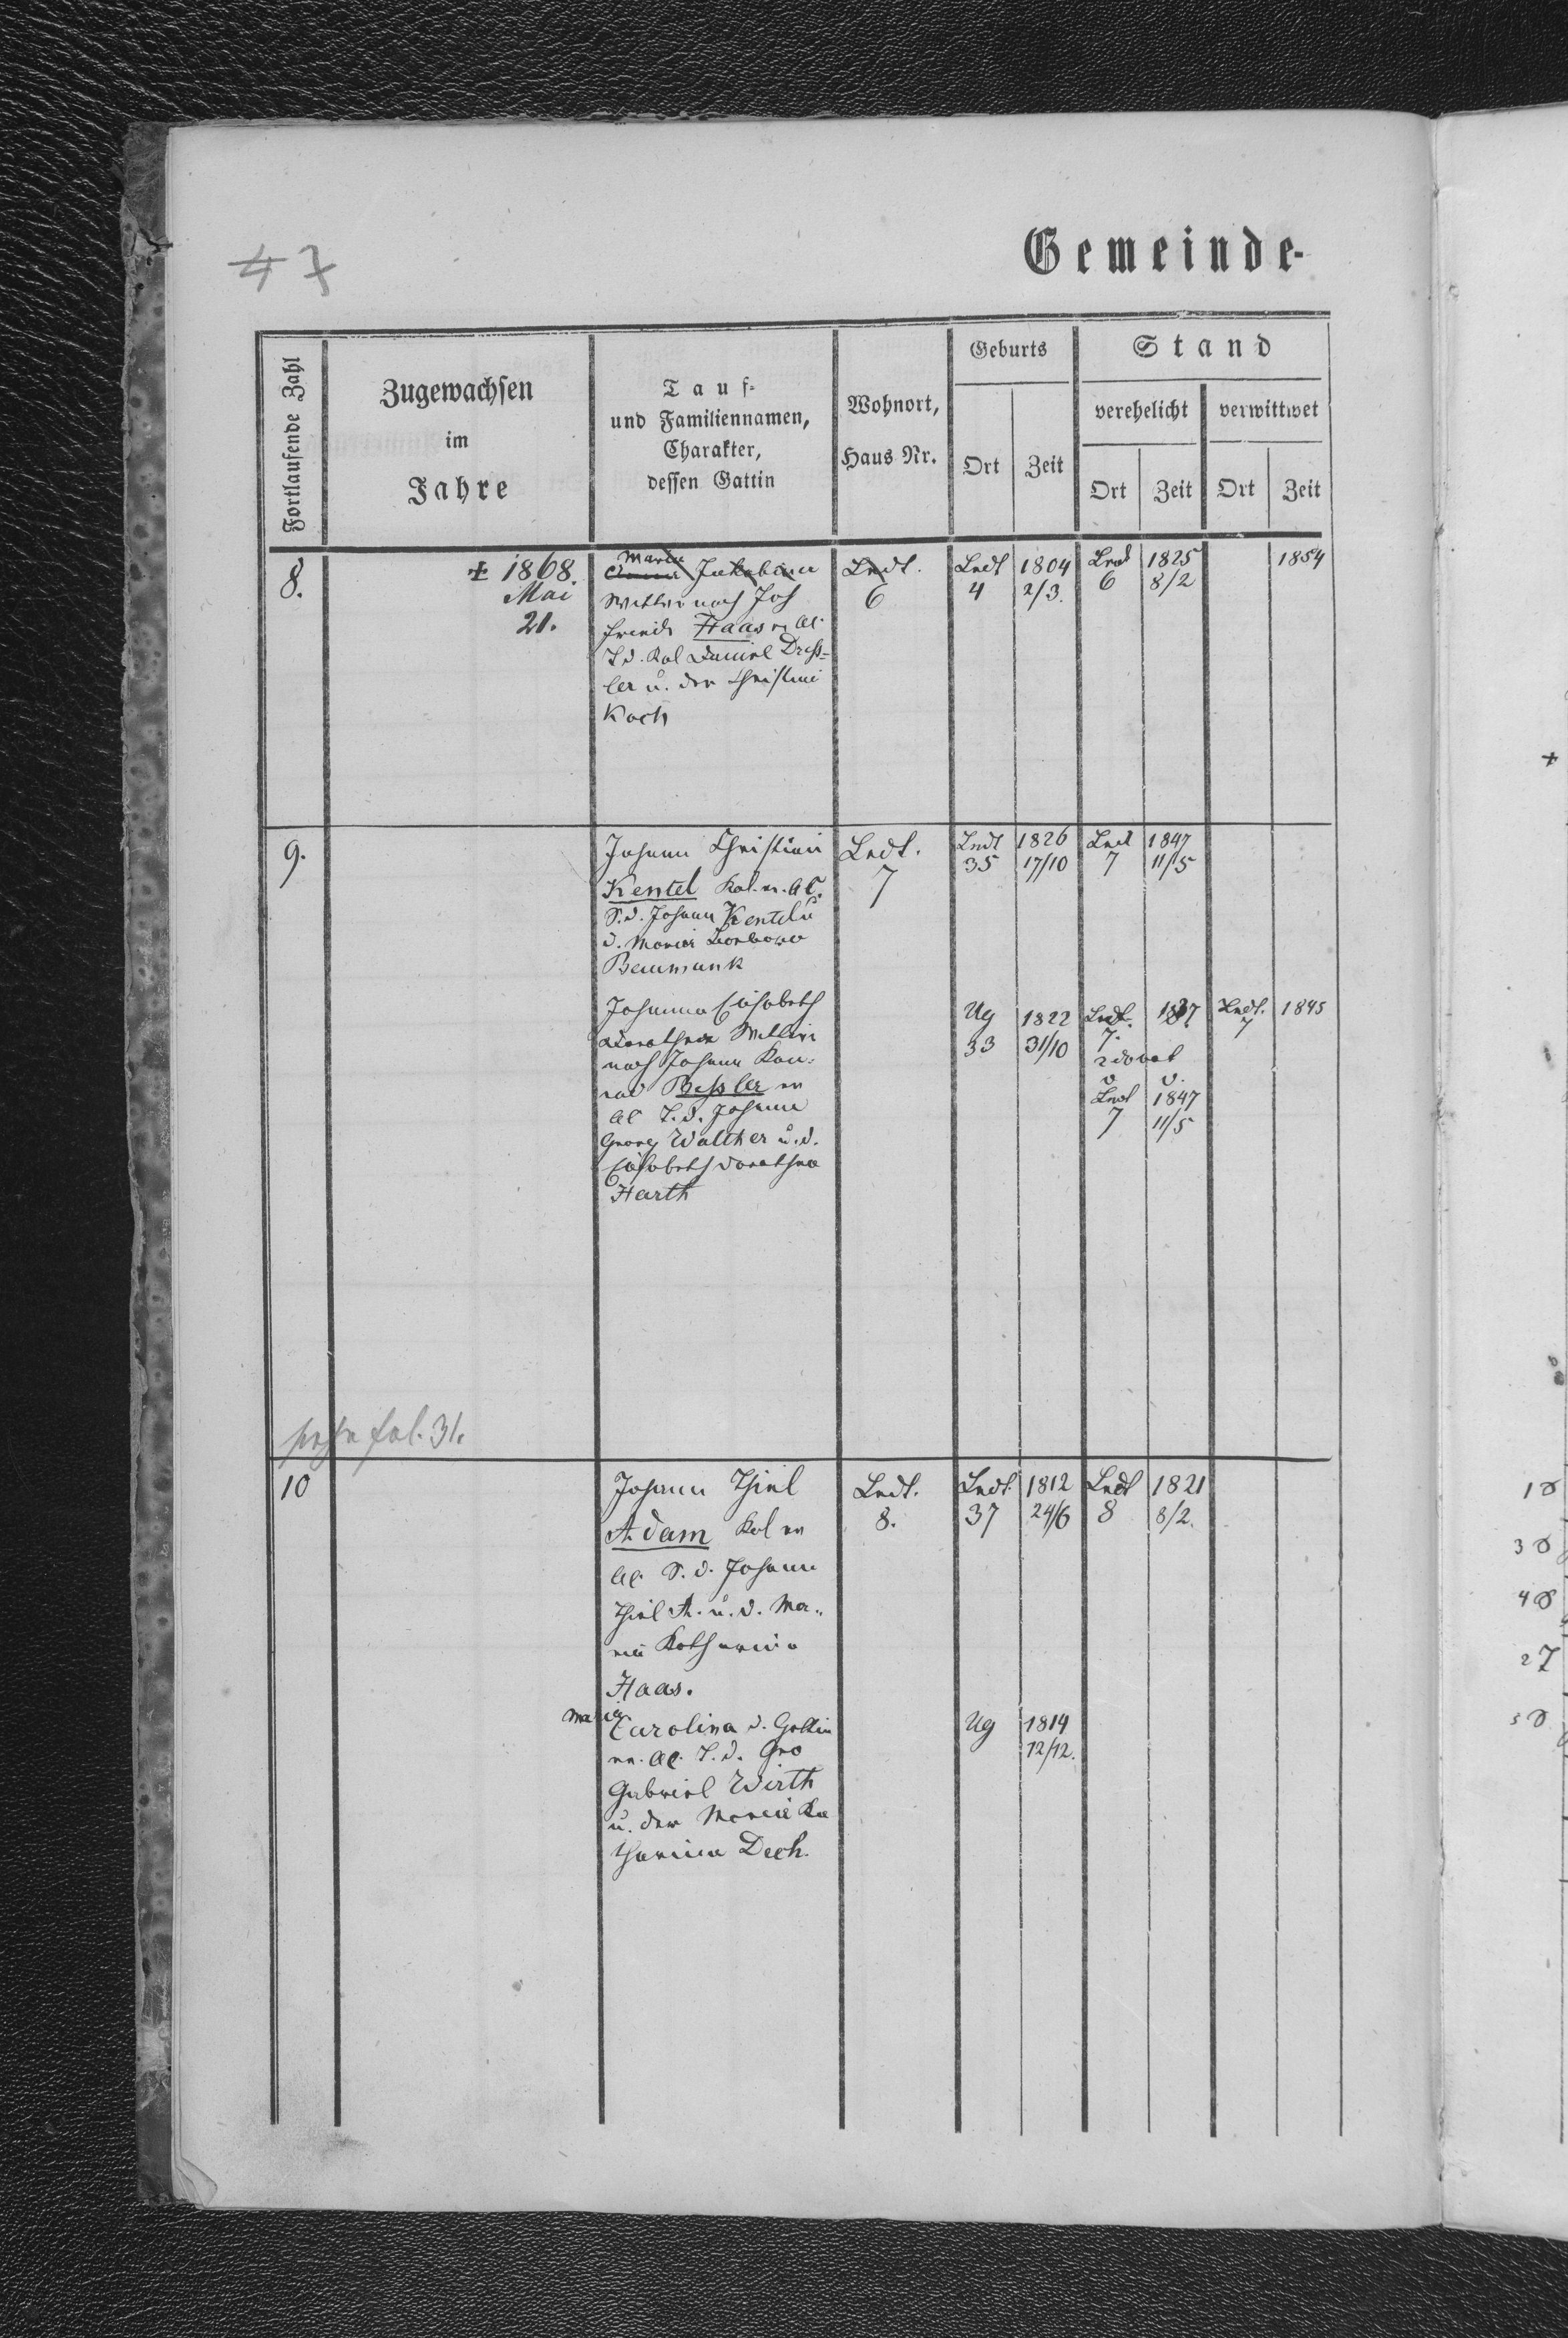 47
Gemeinde-
Fortlaufende Zahl
Zugewachsen
im
Jahre
Tauf-
und Familiennamen,
Charakter,
dessen Gattin
Wohnort,
Haus Nr.
Geburts
Ort
Zeit
Stand
verehelicht
verwittwet
Ort
Zeit
Ort
Zeit
8.
† 1868.
Mai
21.
Maria
Anna Jakobina
Wittwe nach Joh
Friedr Haas ev. AC.
T. d. Kol Daniel Dress-
ler u. der Christine
Koch
Lndt.
6
Lndt
4
1804
2/3.
Lndt
6
1825
8/2
1854
9.
Johann Christian
Kentel Kol. ev. AC.
S. d. Johann Kentel u
d. Maria Barbara
Baumunk
Lndt.
7
Lndt
35
1826
17/10
Lndt
7
1847
11/5
Johanna Elisabeth
Dorothea Wittwe
nach Johann Kon-
rad Bessler ev
AC T. d. Johann
Georg Walther u. d.
Elisabeth Dorothea
Harth
Ug
33
1822
31/10
Lndt.
7.
1837
Lndt.
7
1845
Lndt
7
1847
11/5
fol. 31.
10
Johann Thiel
Adam Kol ev
AC. S. d. Johann
Thiel A. u. d. Ma-
ria Katharina
Haas.
Lndt.
8.
Lndt.
37
1812
24/6
Lndt
8
1821
8/2.
Maria
Carolina d. Gattin
ev. AC. T. d. Geo
Gabriel Wirth
u. der Maria Ka
tharina Dech.
Ug
1814
12/12.